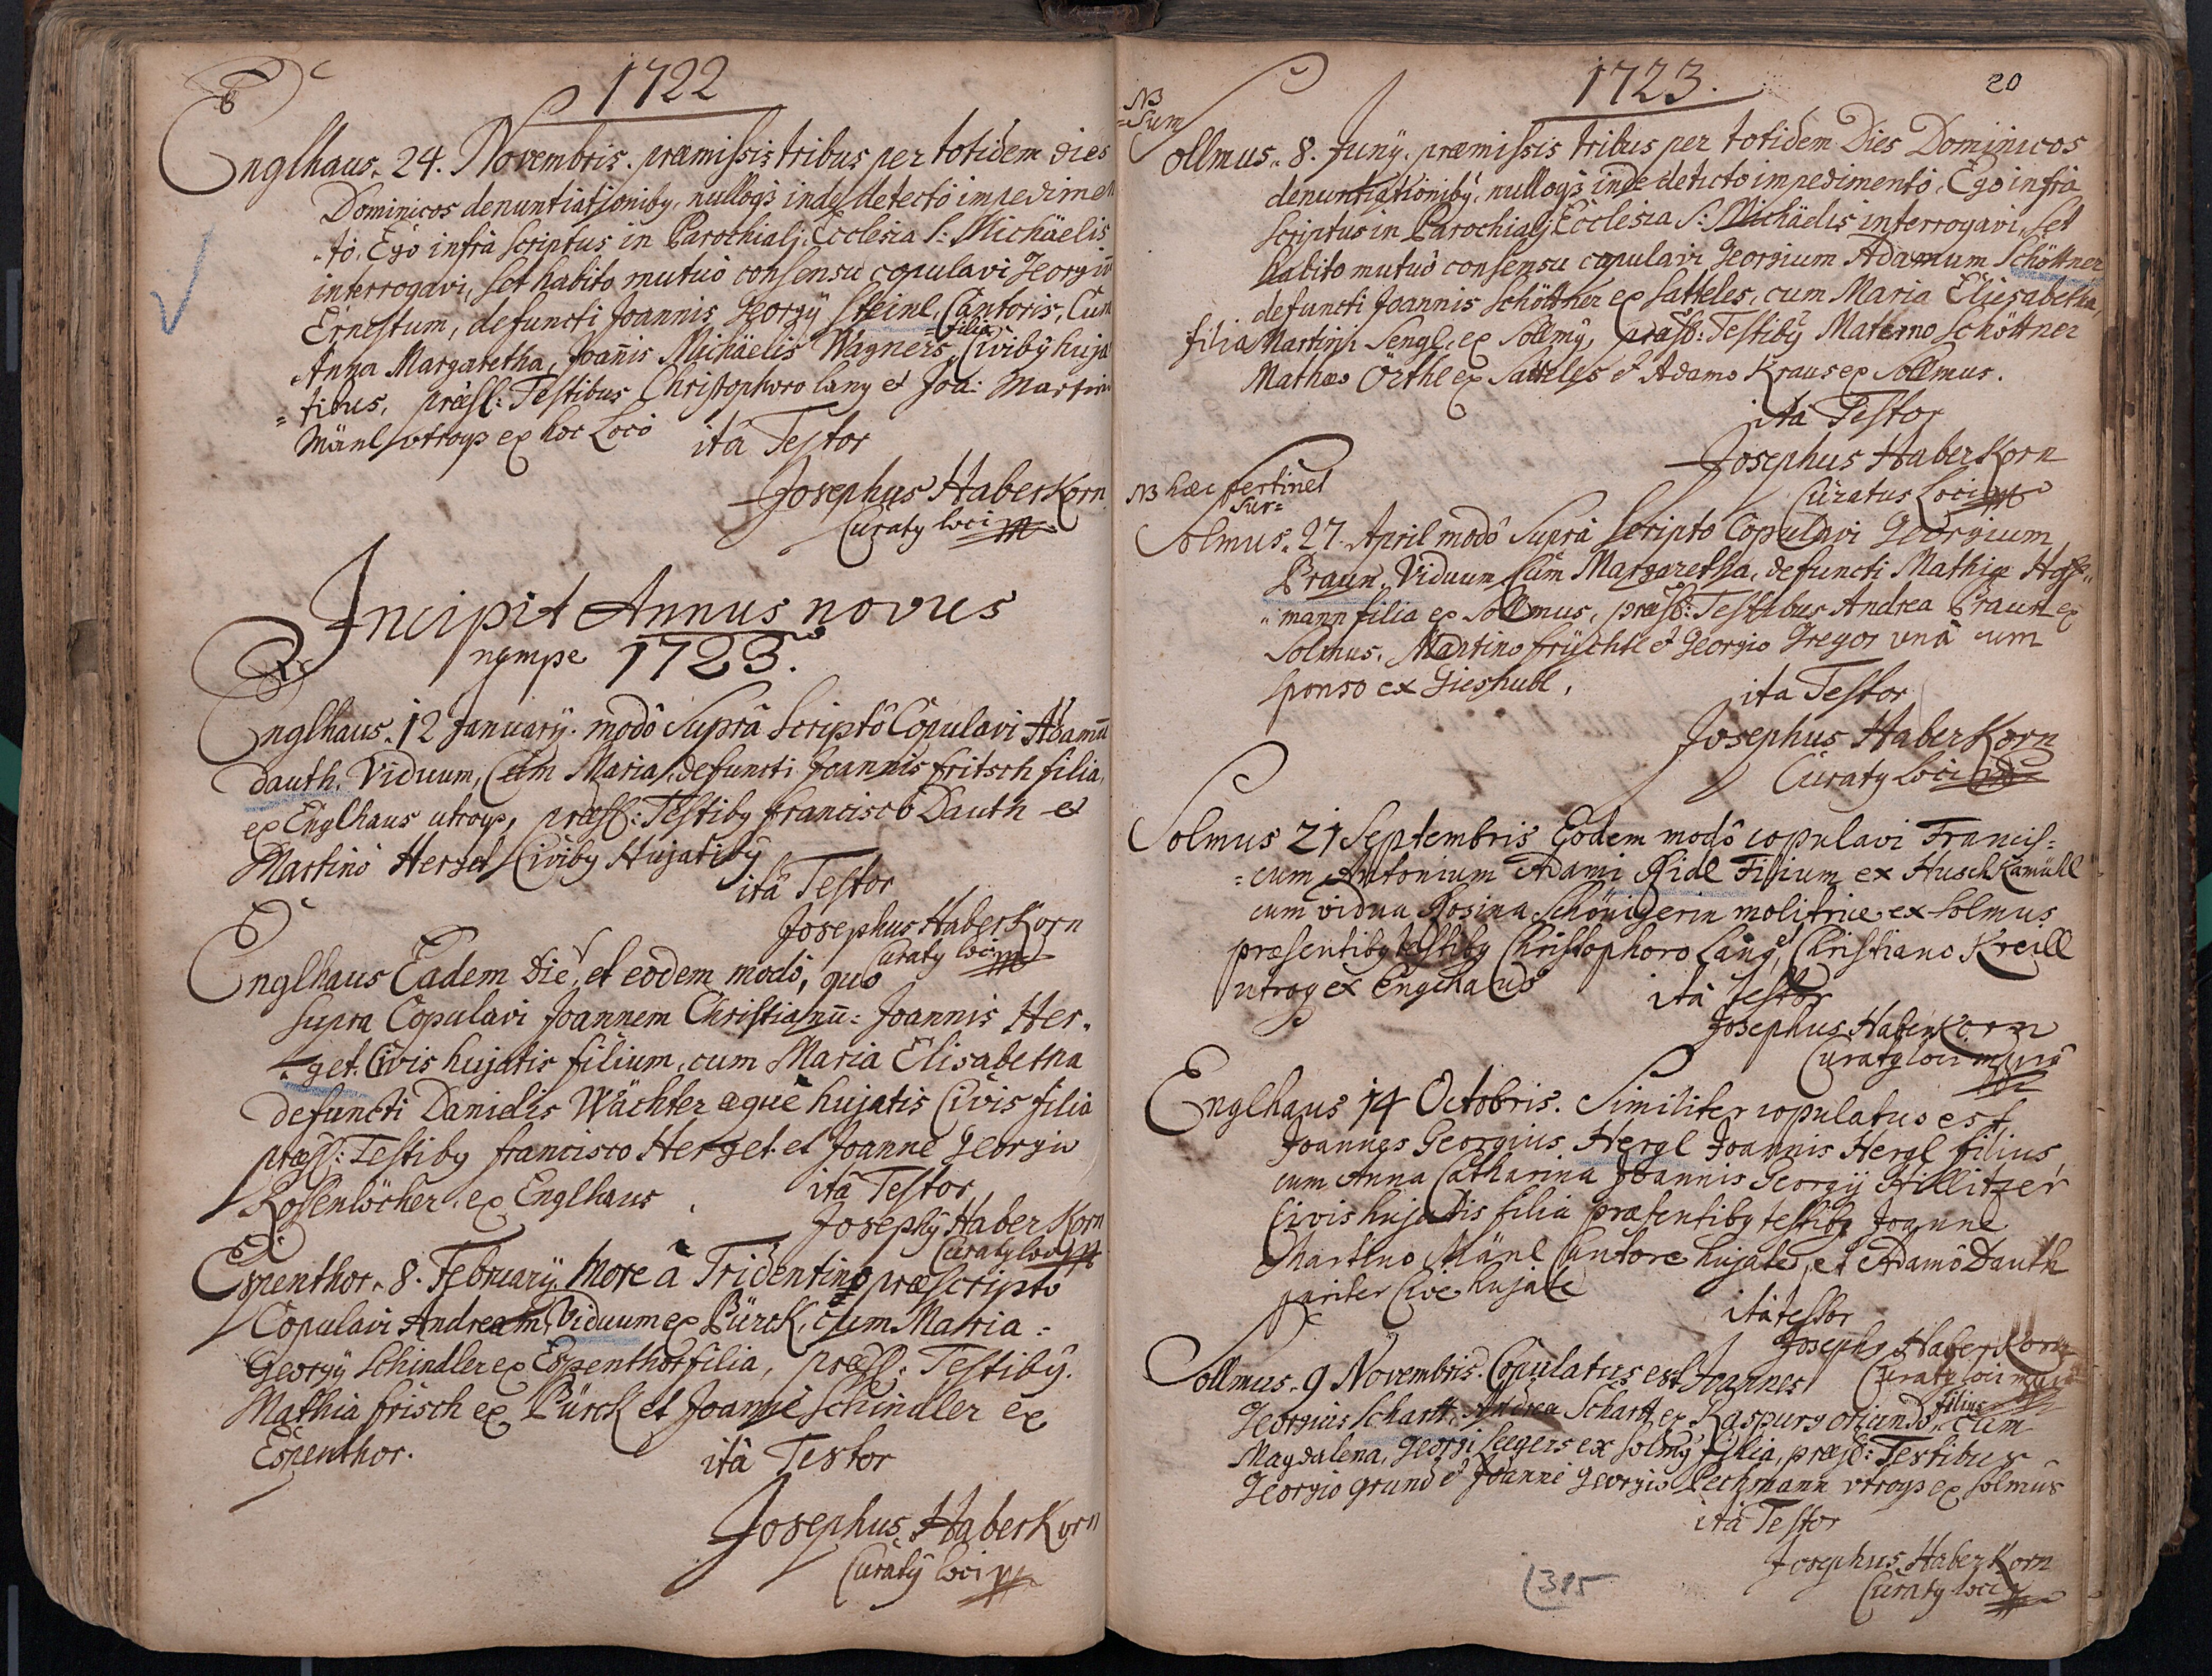 1722
Englhaus. 24. Novembris. præmissis tribus per totidem dies
Dominicos denuntiationiby, nulloqз inde detecto impedimen
-to, Ego infra scriptus in Parochiali Ecclesia S: Michäelis
interrogavi, set habito mutuo consensu copulavi Georgiū
Ernestum, defuncti Joannis Georgÿ Steinl, Cantoris, Cum
filia
Anna Margaretha, Joan̄is Michäelis Wagners, Civiby huja
=tibus, præss: Testibus Christophoro lang et Joa: Martin
Mänl utroqз ex hoc Loco
ità Testor
Josephus HaberKorn
Curaty loci
Incipit Annus novus
nempe 1723.
Englhaus. 12 January. modô Suprà Scriptô Copulavi Adamū
Dauth, Viduum, Cum Maria, defuncti Joannis fritsch filia,
ex Englhaus utroqз, præss: Testiby francisco Dauth et
Martino Herget Civiby Hujatiby
ità Testor
Josephus HaberKorn
Curaty loci
Englhaus Eadem Die, et eodem modô, quo
supra Copulavi Joannem Christianū: Joannis Her-
-get. Civis hujatis filium, cum Maria Elisabetha
defuncti Danielis Wächter æquè hujatis Civis filia
præss: Testiby francisco Herget et Joanne Georgio
Rosenlöcher. ex Englhaus
ità Testor
Josephy HaberKorn
Curaty loci
Espenthor. 8. February. More à Tridentino præscripto
Copulavi Andream, Viduum ex Pürck, cum Maria:
Georgÿ Schindler ex Espenthor filia, præss: Testiby.
Mathia frisch ex Pürck et Joanne Schindler ex
Espenthor.
ità Testor
Josephus HaberKorn
Curaty loci
1723.
20
NB
=Sum
Sollmus. 8. Junÿ. præmissis tribus per totidem Dies Dominicos
denuntiationiby, nulloqз inde detecto impedimento, Ego infrà
scriptus in Parochiali Ecclesia S: Michäelis interrogavi, set
habito mutuò consensu copulavi Georgium Adamum Schöttner
defuncti Joannis Schöttner ex Satteles, cum Maria Eliesabetha,
filia Martini Sengl, ex Sollmy, præss: Testiby Materno Schöttner
Mathæo Örthl ex Satteles et Adamo Kraus ex Sollmus.
ità Testor
Josephus HaberKorn
Curatus Loci
NB hæc pertinet
Sur=
Solmus. 27. April modô Suprà Scripto Copulavi Georgium
Braun, Viduum Cum Margaretha, defuncti Mathiæ Hoff-
-mann filia ex Sollmus, præss: Testibus Andrea Braun ex
Solmus, Martino früchtl et Georgio Gregor unà cum
sponso ex Gieshubl,
ita Testor
Josephus HaberKorn
Curaty Loci
Solmus 21 Septembris Eodem modô copulavi Francis=
=cum Antonium Adami Ridl Filium ex HuschKamühl
cum vidua Rosina Schönigerin molitrice ex Solmus
præsentiby testiby Christophoro Lang, et Christiano Kreill
utroqз ex Englhaus
ità Testor
Josephus HaberKorn
Curaty loci mpria
Englhaus 14 Octobris. Similiter copulatus est
Joannes Georgius Hergl Joannis Hergl filius,
cum Anna Catharina Joannis Georgÿ Hillitzer
Civis hujatis filia præsentiby testiby Joanne
Martino Mänl Cantore hujate, et Adamô Dauth
pariter Cive hujate
ità testor
Josephs HaberKorn
Curaty loci
Sollmus. 9 Novembris. Copulatus est Joannes
filius
Georgius Schartt, Andrea Schartt ex Raspurg oriundo, cum
Magdalena, Georgi Seegers ex Solmy filia, præss: Testibus
Georgio Grund et Joanne Georgio Pechmann utroqз ex Solmus
ità Testor
Josephus HaberKorn
Curaty loci
(315